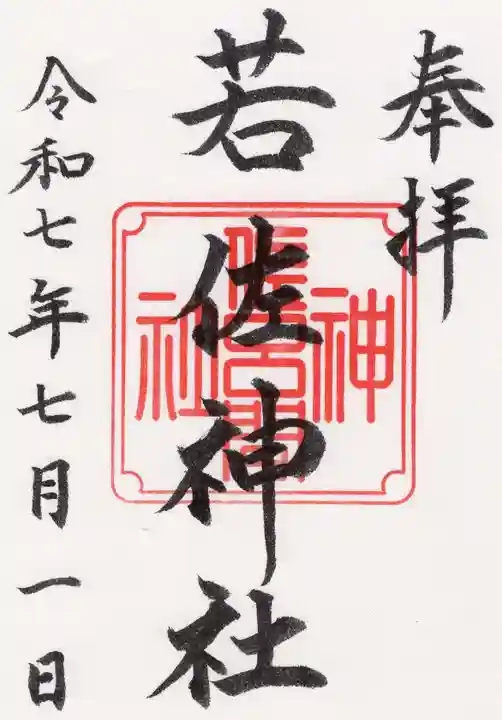 奉拝
若佐神社
令和七年七月一日
神
社